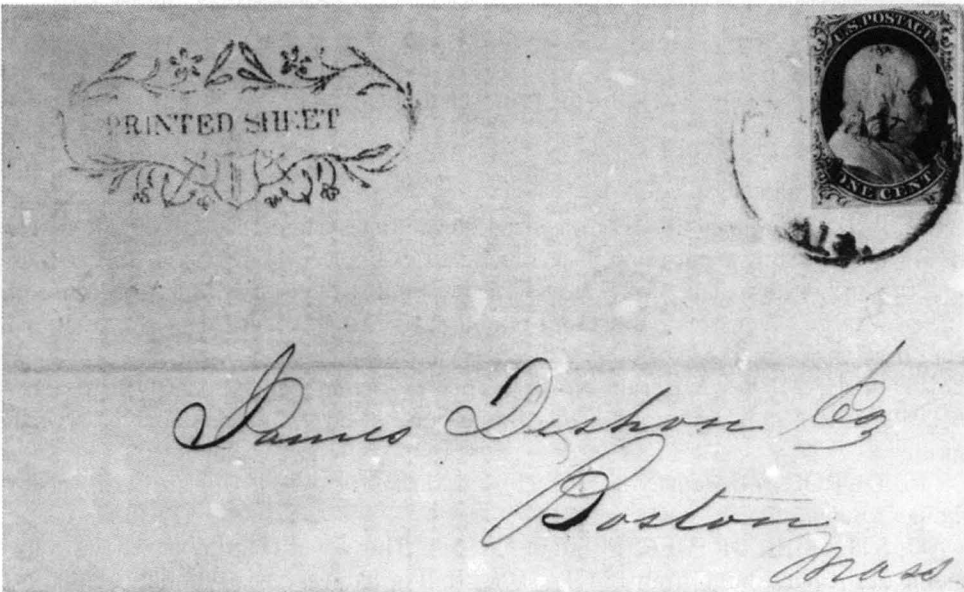 PRINTED SHEET
U.S. POSTAGE
ONE CENT
James Deshon Esq
Boston
Mass